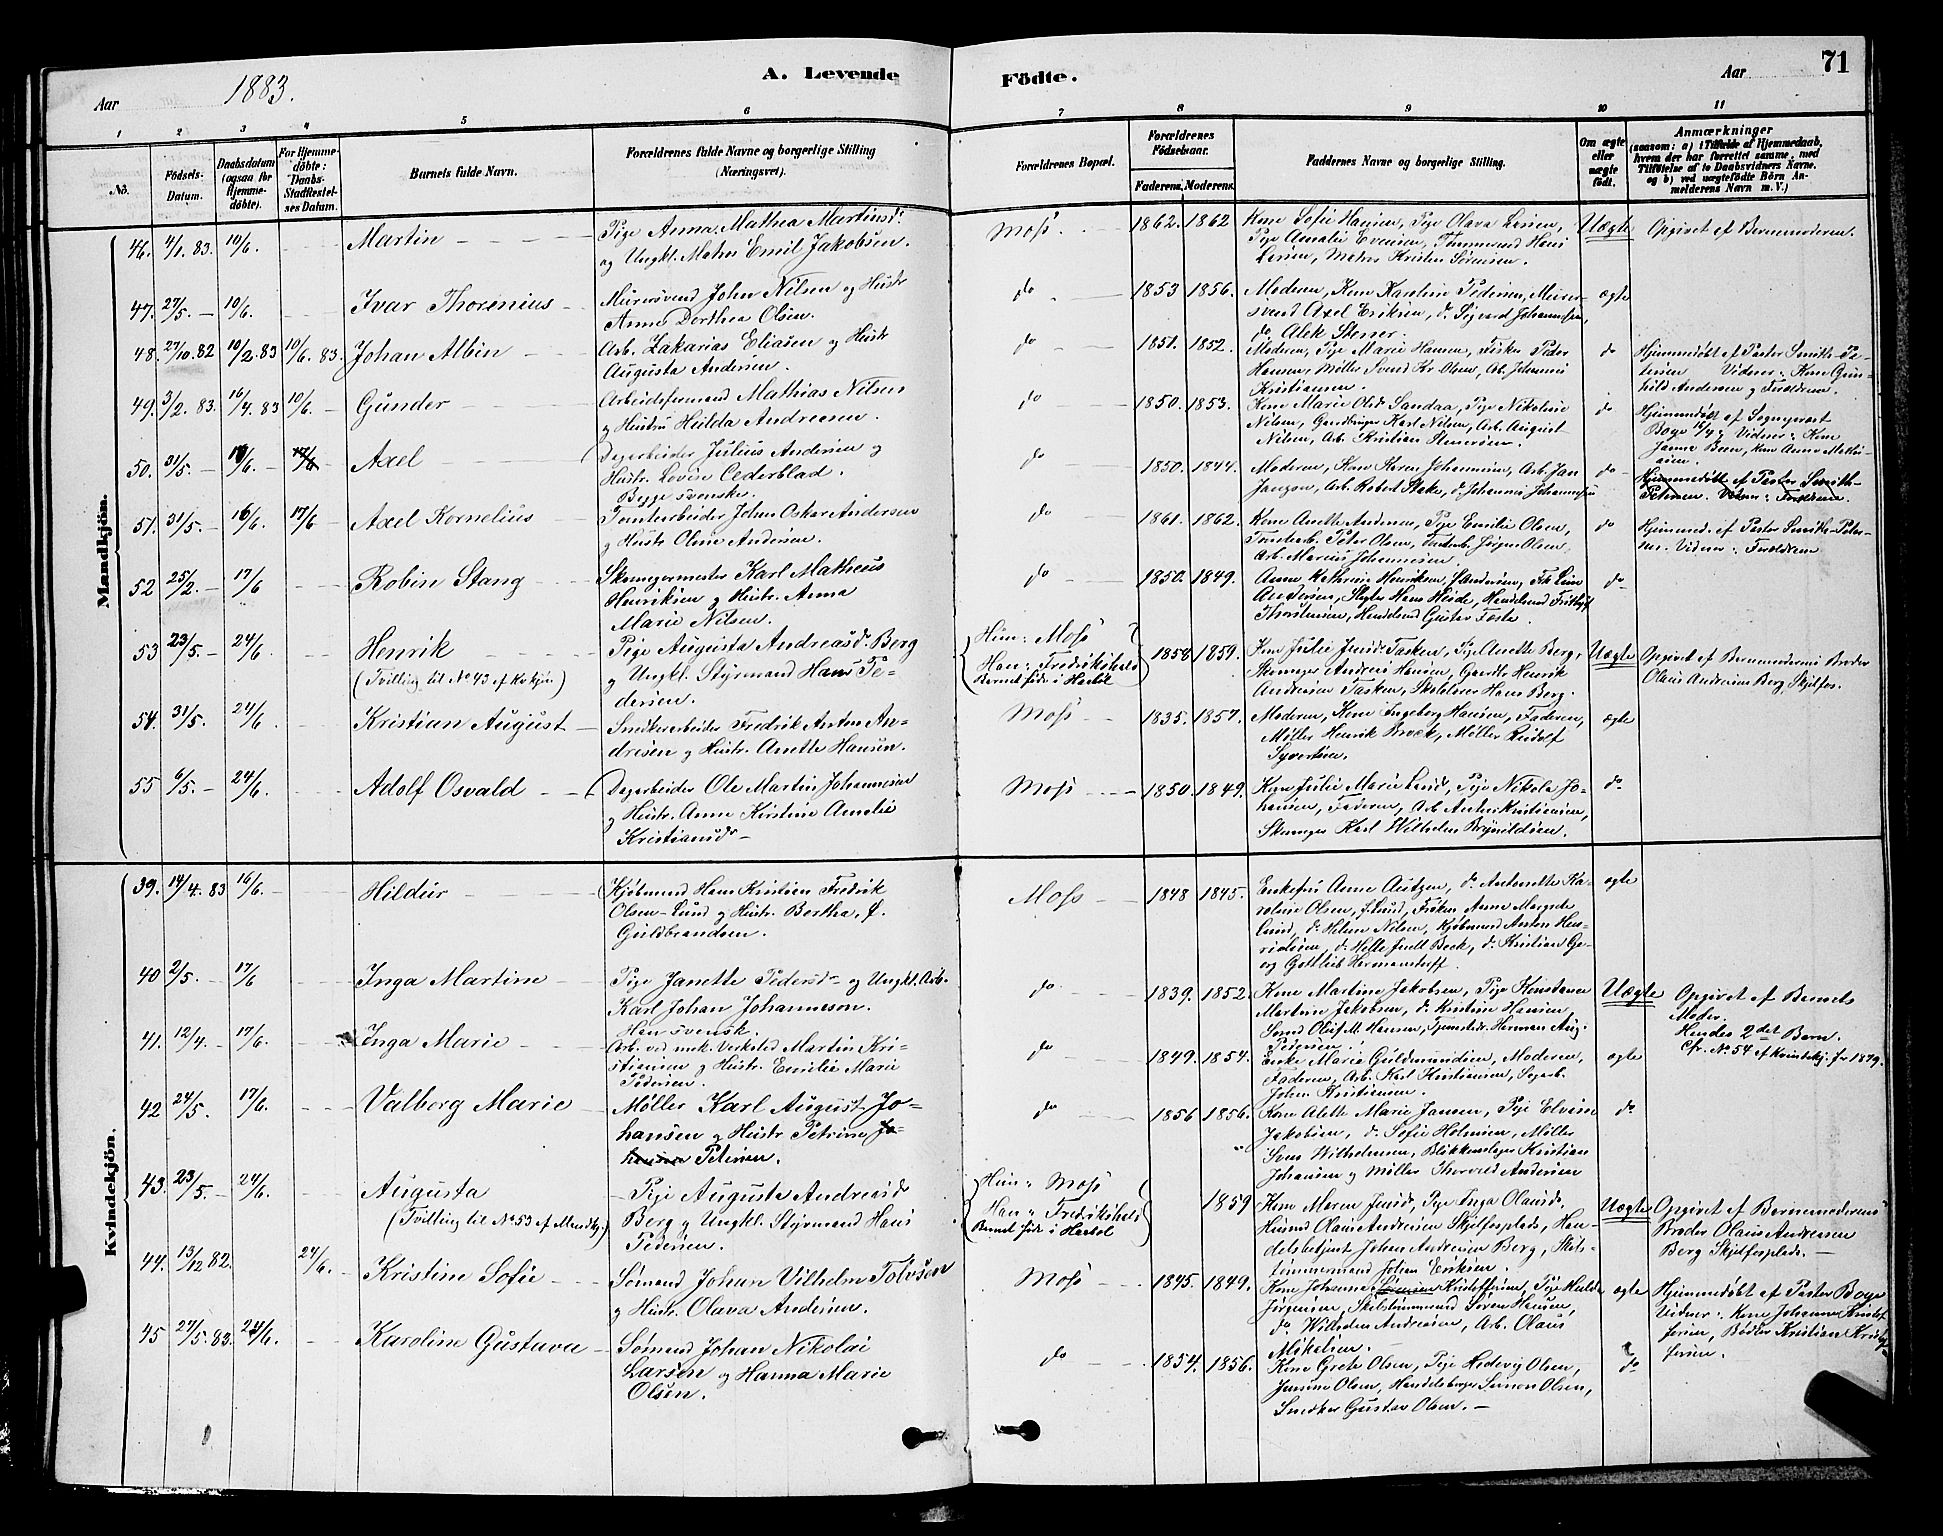 1883.
A. Levende
Födte.
71
Aar
Aar
1 2 3 4 5 6 7 8 9 10 11
No.
Födsels-Datum.
Daabsdatum (ogsaa for Hjemmedöbte).
For Hjemmedöbte: Daabs-Stadfæstelses Datum.
Barnets fulde Navn.
Forældrenes fulde Navne og borgerlige Stilling (Næringsvei).
Forældrenes Bopæl.
Forældrenes Födselsaar.
Faderens. Moderens.
Faddernes Navne og borgerlige Stilling.
Om ægte eller uægte födt.
Anmærkninger
(saasom: a) i Tilfælde af Hjemmedaab, hvem der har forrettet samme, med Tilföielse af to Daabsvidners Navne. og b) ved uægtefödte Börn Anmelderens Navn m. V.)
Mandkjön.
46. 4/1. 83. 10/6. Martin
Pige Anna Mathea Martinsd:
og Ungkl. Matros Emil Jakobsen.
Moss 1862. 1862
Kone Sofie Hansen, Pige Olava Larsen,
Pige Amalie Evensen, Tømmermd Hans
Larsen, Matros Kristen Sørensen.
Uægte Opgivet af Barnemoderen.
47. 27/5. 10/6. Ivar Thorenius
Murersvend John Nilsen og Hustr
Anna Dorthea Olsen.
do 1853 1856.
Moderen, Kone Karoline Pedersen, Murersvend Axel Eriksen, do Sigvard Johannesen,
do Alek Stener.
ægte
48. 27/10. 82 10/2. 83 10/6. 83. Johan Albin
Arb. Zakarias Eliasen og Hustr
Augusta Andersen.
do 1851. 1852.
Moderen, Pige Marie Hansen, Fisker Peder
Hansen, Møller Svend Kr. Olsen, Arb. Johannes
Kristiansen.
do Hjemmedøbt af Pastor Smith-Petersen Vidner: Kone Gunhild Andersen og Forældrene.
49. 3/2. 83. 16/4. 83 10/6. Gunder
Arbeidsformand Mathias Nilsen
og Hustru Hulda Andresen.
do 1850. 1853.
Kone Marie Olsd Sandaa, Pige Nikoline
Nilsen, Gaardbruger Karl Nilsen, Arb. August
Nilsen, Arb. Kristian Stenersen.
do Hjemmedøbt af Sogneprest
Boye 16/4. Vidner: Kone
50. 31/5. 10/6. 17/6 Axel
Dagarbeider Julius Andersen og
Hustr. Lovise Cederblad.
Begge svenske.
do 1850. 1844.
Moderen, Kone Karen Johannesen, Arb. Jan
Janzon, Arb. Robert Stake, do Johannes Johannesen
do Hjemmedøbt af Pastor Smith-
Petersen. Vidner: Forældrene.
51. 31/5. 16/6. 17/6 Axel Kornelius
Tomtearbeider Johan Oskar Andersen
og Hustr Oline Andersen.
do 1861. 1862.
Kone Anette Andersen, Pige Emilie Olsen,
Tomtearb. Peter Olsen, Tomtearb. Jørgen Olsen,
Arb. Marius Johannesen.
do Hjemmed. af Pastor Smith-Petersen. Vidner: Forældrene
52 25/2. 17/6 Robin Stang
Skomagermester Karl Mathæus
Henriksen og Hustr. Anna
Marie Nilsen.
do 1850. 1849.
do
53 23/5. 24/6. Henrik
(Tvilling til No 43 af Kvkjøn)
Pige Augusta Andreasd. Berg
og Ungkl. Styrmand Hans Pedersen.
Hun: Moss
Han: Fredrikshald
1858 1859.
Kone Julie Jensd Tasken, Pige Anette Berg,
Skomager Andreas Hansen, Gaardbr Henrik
Andresen Tasken, Skoletner Hans Berg.
Uægte Opgivet af Barnemoderens Broder
Olaus Andresen Berg Skjelfos.
54. 31/5. 24/6. Kristian August
Snedkerarbeider Fredrik Anton Andresen og Hustr. Anette Hansen.
Moss 1835. 1857.
Moderen, Kone Ingeborg Hansen, Faderen,
Møller Henrik Brock, Møller Rudolf
Syvertsen.
ægte
55 6/5. 24/6. Adolf Osvald
Dagarbeider Ole Martin Johannesen
og Hustr. Anne Kirstine Amalie
Kristiansd
Moss 1850. 1849.
Kone Julie Marie Lund, Pige Nikola Johansen, Faderen, Arb Anton Kristiansen,
Skomager Karl Wilhelm Brynildsen.
do
Kvindekjön.
39. 14/4. 83 16/6. Hildur
Kjøbmand Hans Kristian Fredrik
Olsen-Lund og Hustr. Bertha, f.
Guldbrandsen.
Moss 1848 1845.
Enkefru Anne Autzen, do. Antonette Karoline Olsen, f. Lund, Frøken Anne Margrete
Lund, do Helene Nilsen, Kjøbmand Anton Henriksen, do Helle Juell Beck, do Kristian Georg Gottlieb Hermansdorff.
ægte
40 2/5. 17/6 Inga Martine
Pige Janette Pedersd og Ungkl. Arb.
Karl Johan Johanneson.
Han svensk.
do 1839. 1852.
Kone Martine Jakobsen, Pige Konstance
Martine Jakobsen, do. Kristine Hansen,
Sømd Oluf M. Hansen, Tjenestedr. Herman Aug.
Pedersen.
Uægte Opgivet af Barnets
Moder.
Hendes 2det Barn.
Cfr. No. 54 af Kvindekj. for 1879.
41. 12/4. 17/6. Inga Marie
Arb. ved mek. Verksted Martin Kristiansen og Hustr. Emilie Marie
Pedersen.
do 1849. 1854.
Enke Marie Guldmundsen, Moderen,
Faderen, Arb. Karl Kristiansen, Sagarb.
Johan Kristiansen.
ægte
42 24/5. 17/6. Valborg Marie
Møller Karl August Johansen og Hustr Petrine Johansen Petersen.
do 1856 1856.
Kone Alette Marie Jansen, Pige Elvine
Jakobsen, do. Sofie Holmsen, Møller
Sven Wilhelmsen, Blikkenslager Kristian
Johansen og Møller Thorvald Andersen
do
43. 23/5. 24/6. Augusta
(Tvilling til No 53 af Mandkj.)
Pige Augusta Andreasd
Berg og Ungkl. Styrmand Hans
Pedersen.
Hun: Moss
Han: Fredrikshald
1859
Kone Maren Jensd, Pige Inga Olausd.
Husmd Olaus Andresen Skjelfosplads, Handelsbetjent Johan Andresen Berg, Skibstømmermand Johan Eriksen.
Uægte Opgivet af Barnemoderens
Broder Olaus Andresen
Berg Skjelfosplads.
44. 13/12 82. 24/6. Kristine Sofie
Sømand Johan Vilhelm Tolvson
og Hustr. Olava Andersen.
Moss 1845. 1849.
Kone Johanne Kristoffersen, Pige Hulda
Jørgensen, Skibstømmermd Søren Hansen,
do Wilhelm Andresen, Arb. Olaus
Mikelsen.
ægte Hjemmedøbt af Pastor Boye
Vidner: Kone Johanne Kristoffersen, Bødker Kristian Kristoffersen.
45 27/5. 83. 24/6. Karoline Gustava
Sømand Johan Nikolai
Larsen og Hanna Marie
Olsen.
do 1854. 1856.
Kone Grete Olsen, Pige Hedevig Olsen,
Jensine Olsen, Handelsborger Simon Olsen,
Snedker Gustav Olsen.
do